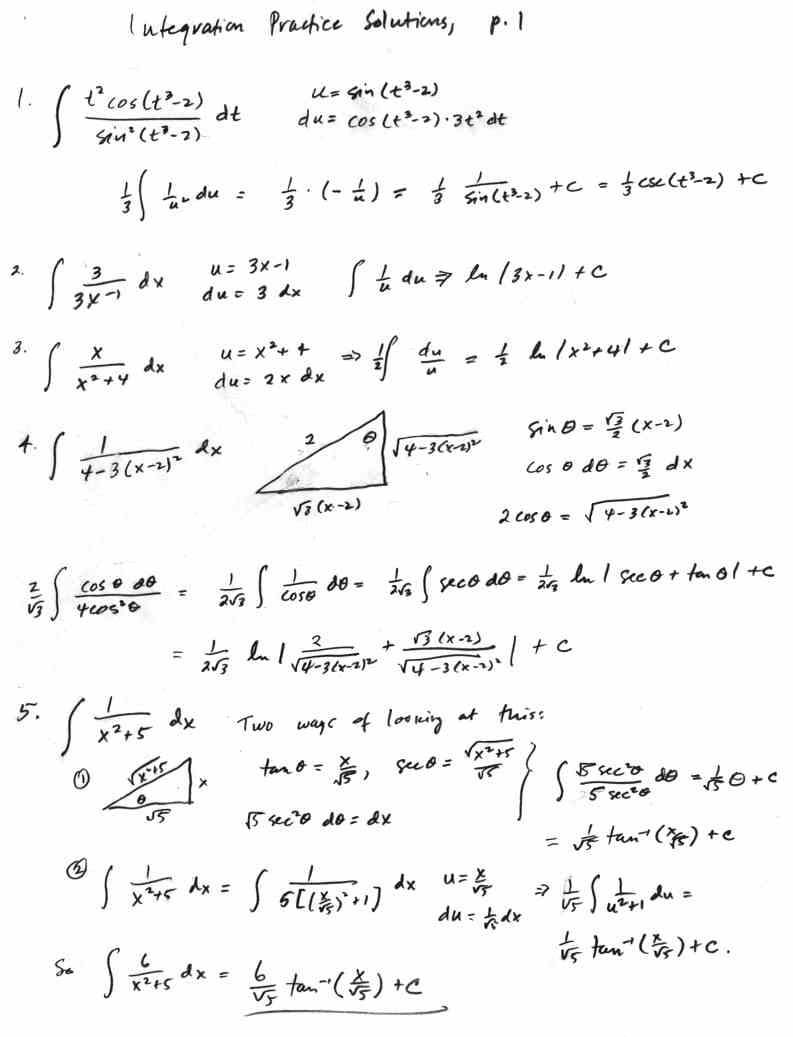 Integration Practice Solutions, p. 1
1. ∫ t² cos(t³-2) / sin²(t³-2) dt u = sin(t³-2)
du = cos(t³-2)·3t² dt
1/3 ∫ 1/u² du = 1/3 · (-1/u) = 1/3 1/sin(t³-2) + C = 1/3 csc(t³-2) + C
2. ∫ 3/(3x-1) dx u = 3x-1 ∫ 1/u du ⇒ ln|3x-1| + C
du = 3 dx
3. ∫ x/(x²+4) dx u = x²+4 ⇒ 1/2 ∫ du/u = 1/2 ln|x²+4| + C
du = 2x dx
4. ∫ 1/(4-3(x-2)²) dx 2 θ √(4-3(x-2)²) sin θ = √3/2 (x-2)
√3(x-2) cos θ dθ = √3/2 dx
2 cos θ = √(4-3(x-2)²)
2/√3 ∫ cos θ dθ / 4cos²θ = 1/(2√3) ∫ 1/cosθ dθ = 1/(2√3) ∫ sec θ dθ = 1/(2√3) ln|sec θ + tan θ| + C
= 1/(2√3) ln| 2/√(4-3(x-2)²) + √3(x-2)/√(4-3(x-2)²) | + C
5. ∫ 1/(x²+5) dx Two ways of looking at this:
① √(x²+5) x θ √5 tan θ = x/√5, sec θ = √(x²+5)/√5 } ∫ √5 sec²θ / 5 sec²θ dθ = 1/√5 θ + C
√5 sec²θ dθ = dx
= 1/√5 tan⁻¹(x/√5) + C
② ∫ 1/(x²+5) dx = ∫ 1/(5[(x/√5)²+1]) dx u = x/√5 ⇒ 1/√5 ∫ 1/(u²+1) du =
du = 1/√5 dx
1/√5 tan⁻¹(x/√5) + C.
So ∫ 6/(x²+5) dx = 6/√5 tan⁻¹(x/√5) + C